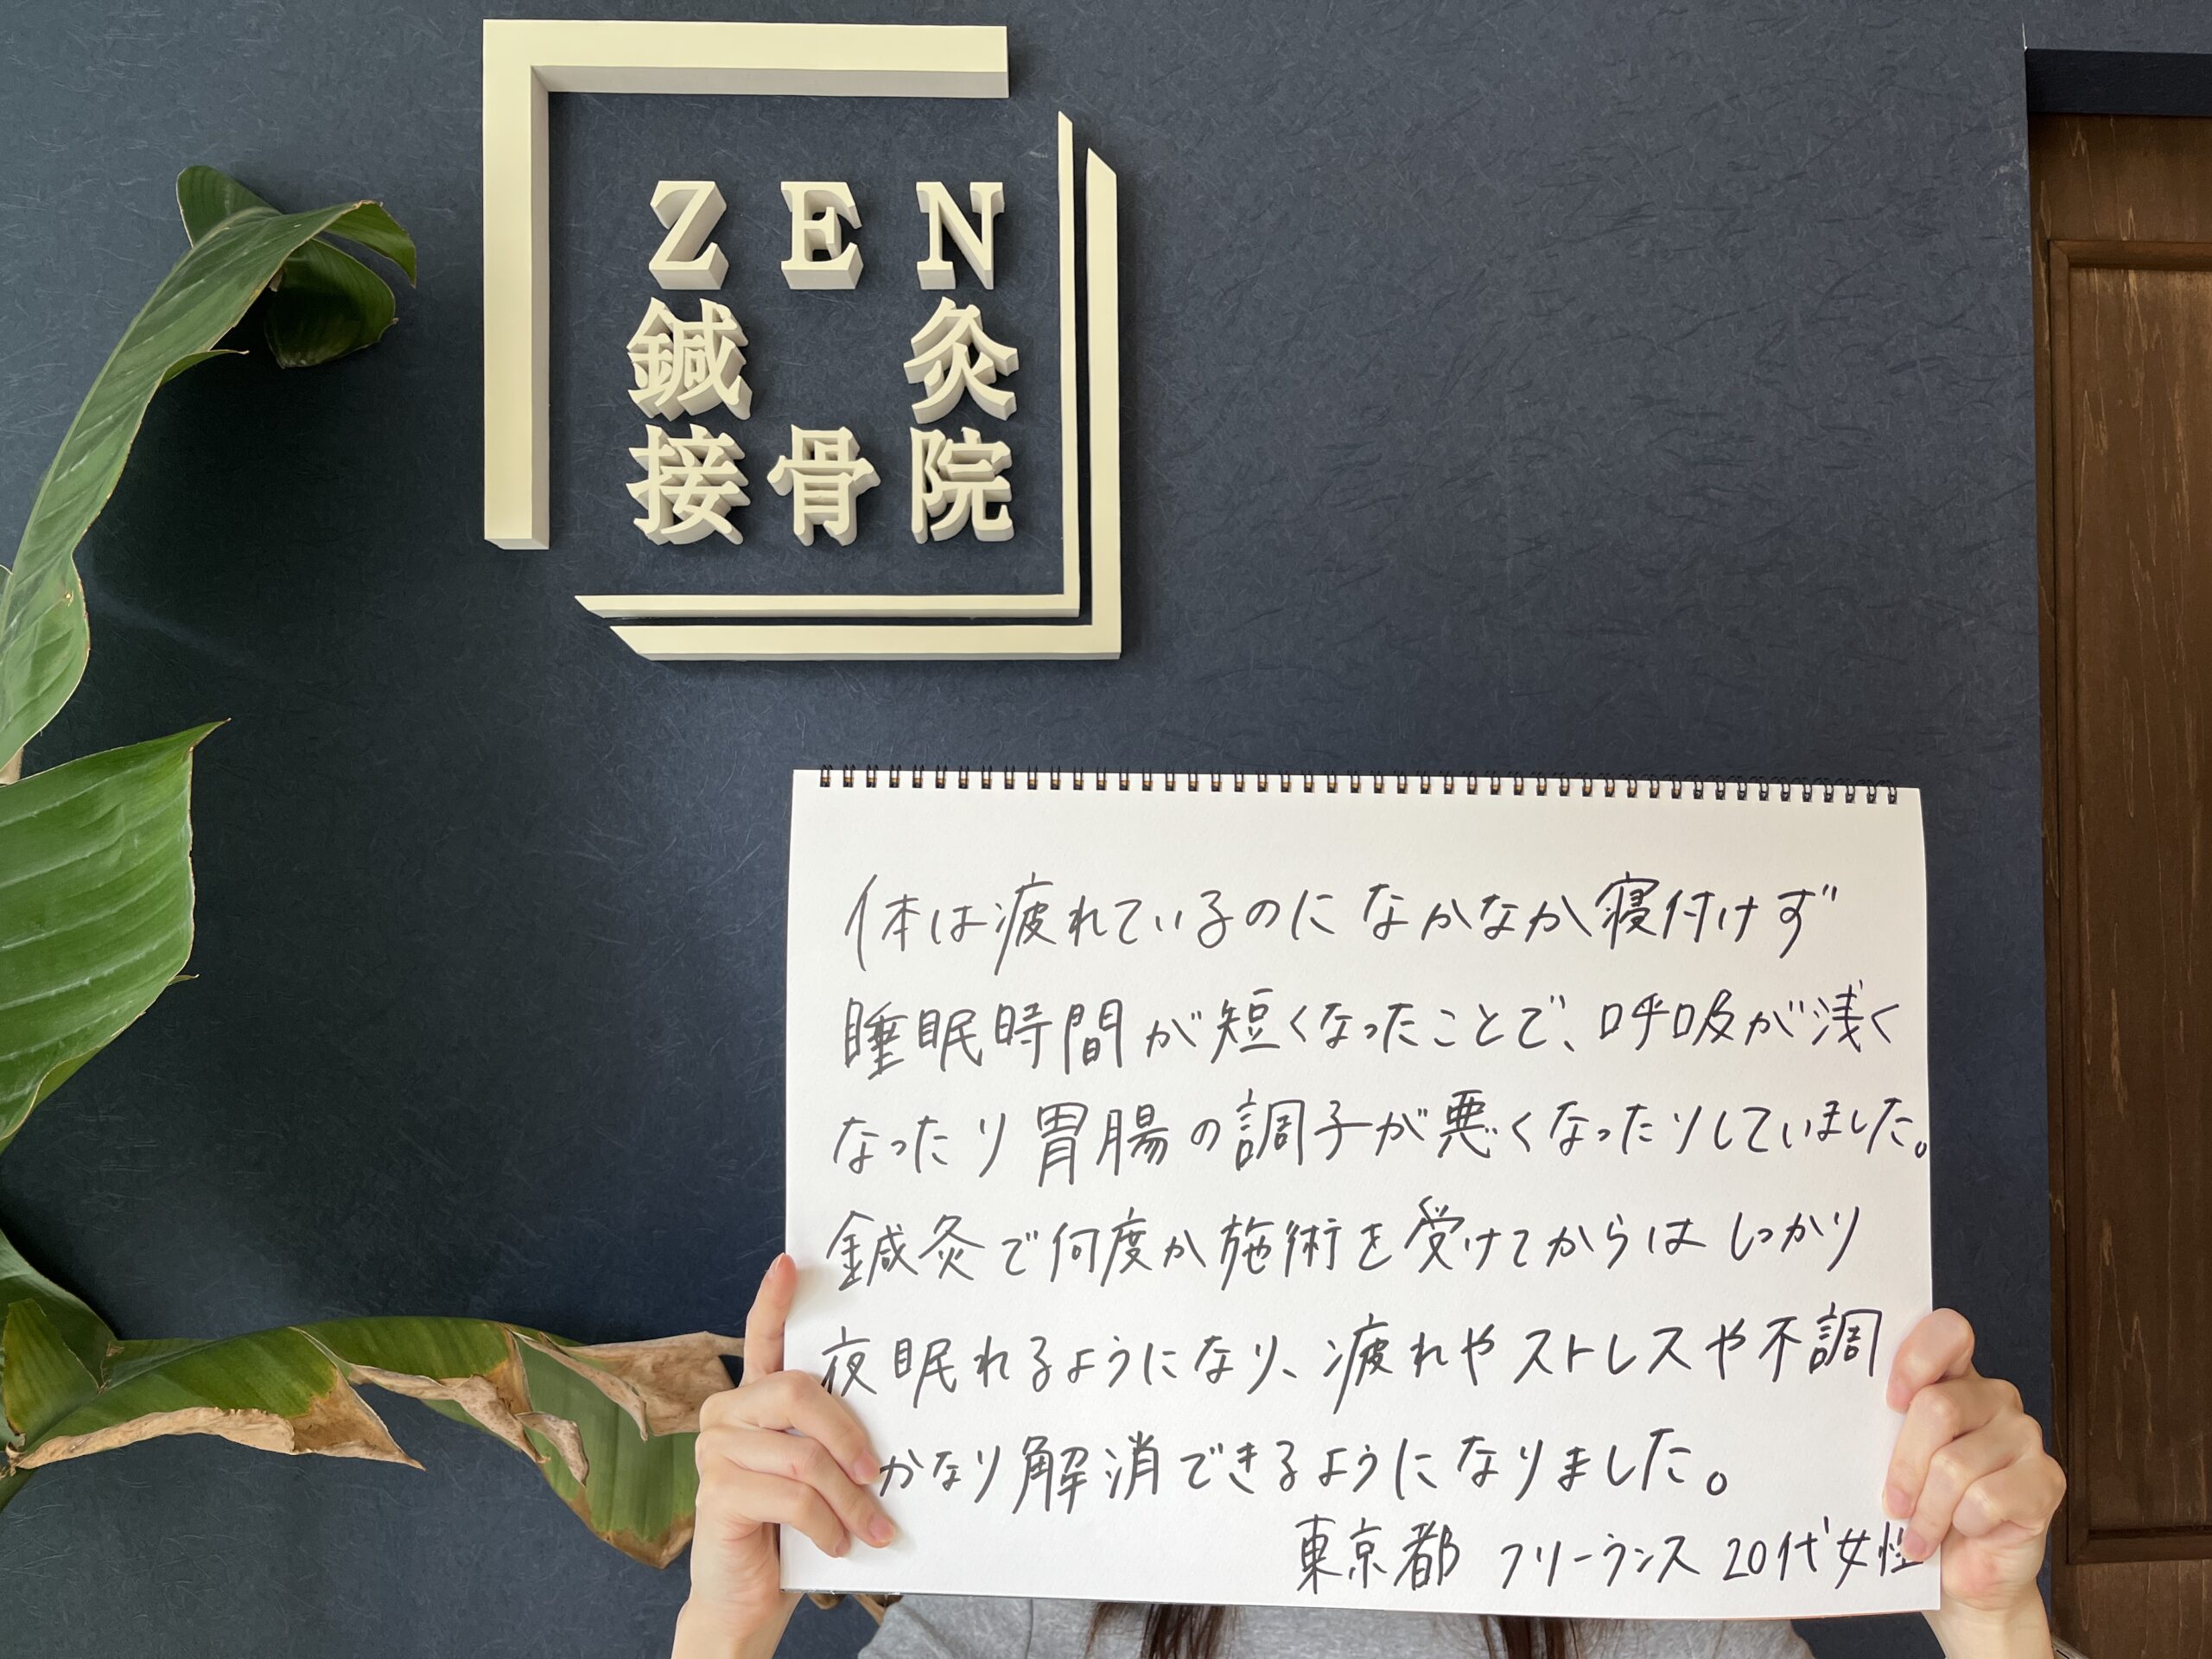 ZEN
鍼灸
接骨院
体は疲れているのになかなか寝付けず
睡眠時間が短くなったことで、呼吸が浅く
なったり胃腸の調子が悪くなったりしていました。
鍼灸で何度か施術を受けてからはしっかり
夜眠れるようになり、疲れやストレスや不調
かなり解消できるようになりました。
東京都 フリーランス 20代女性